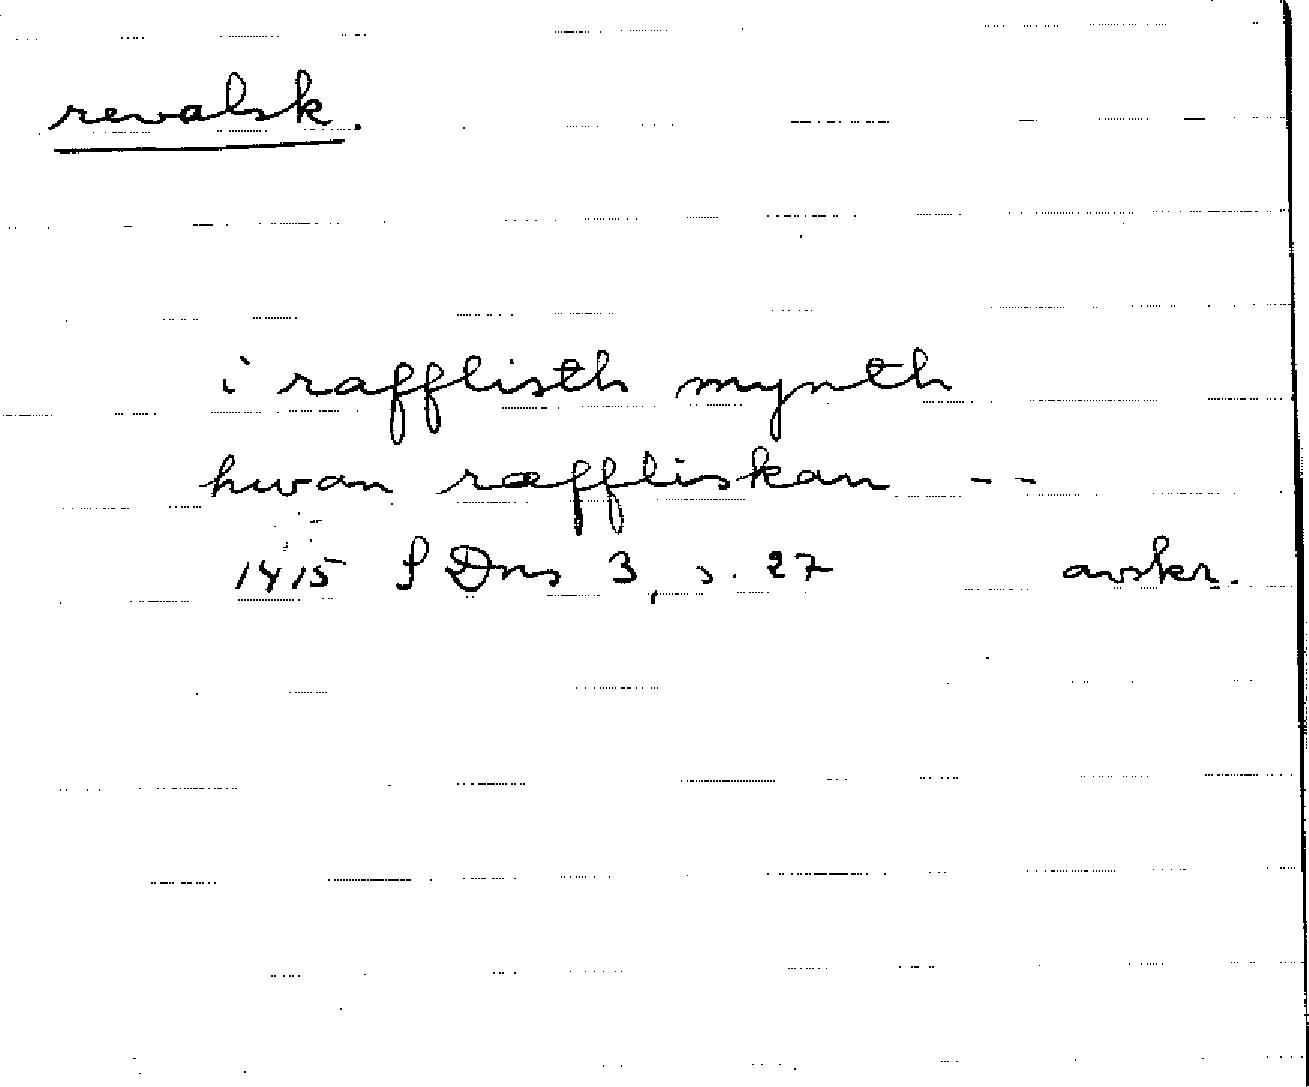 revalsk.
i rafflisth mynth
hwan ræffliskan --
1415 SDns 3, s. 27 avskr.